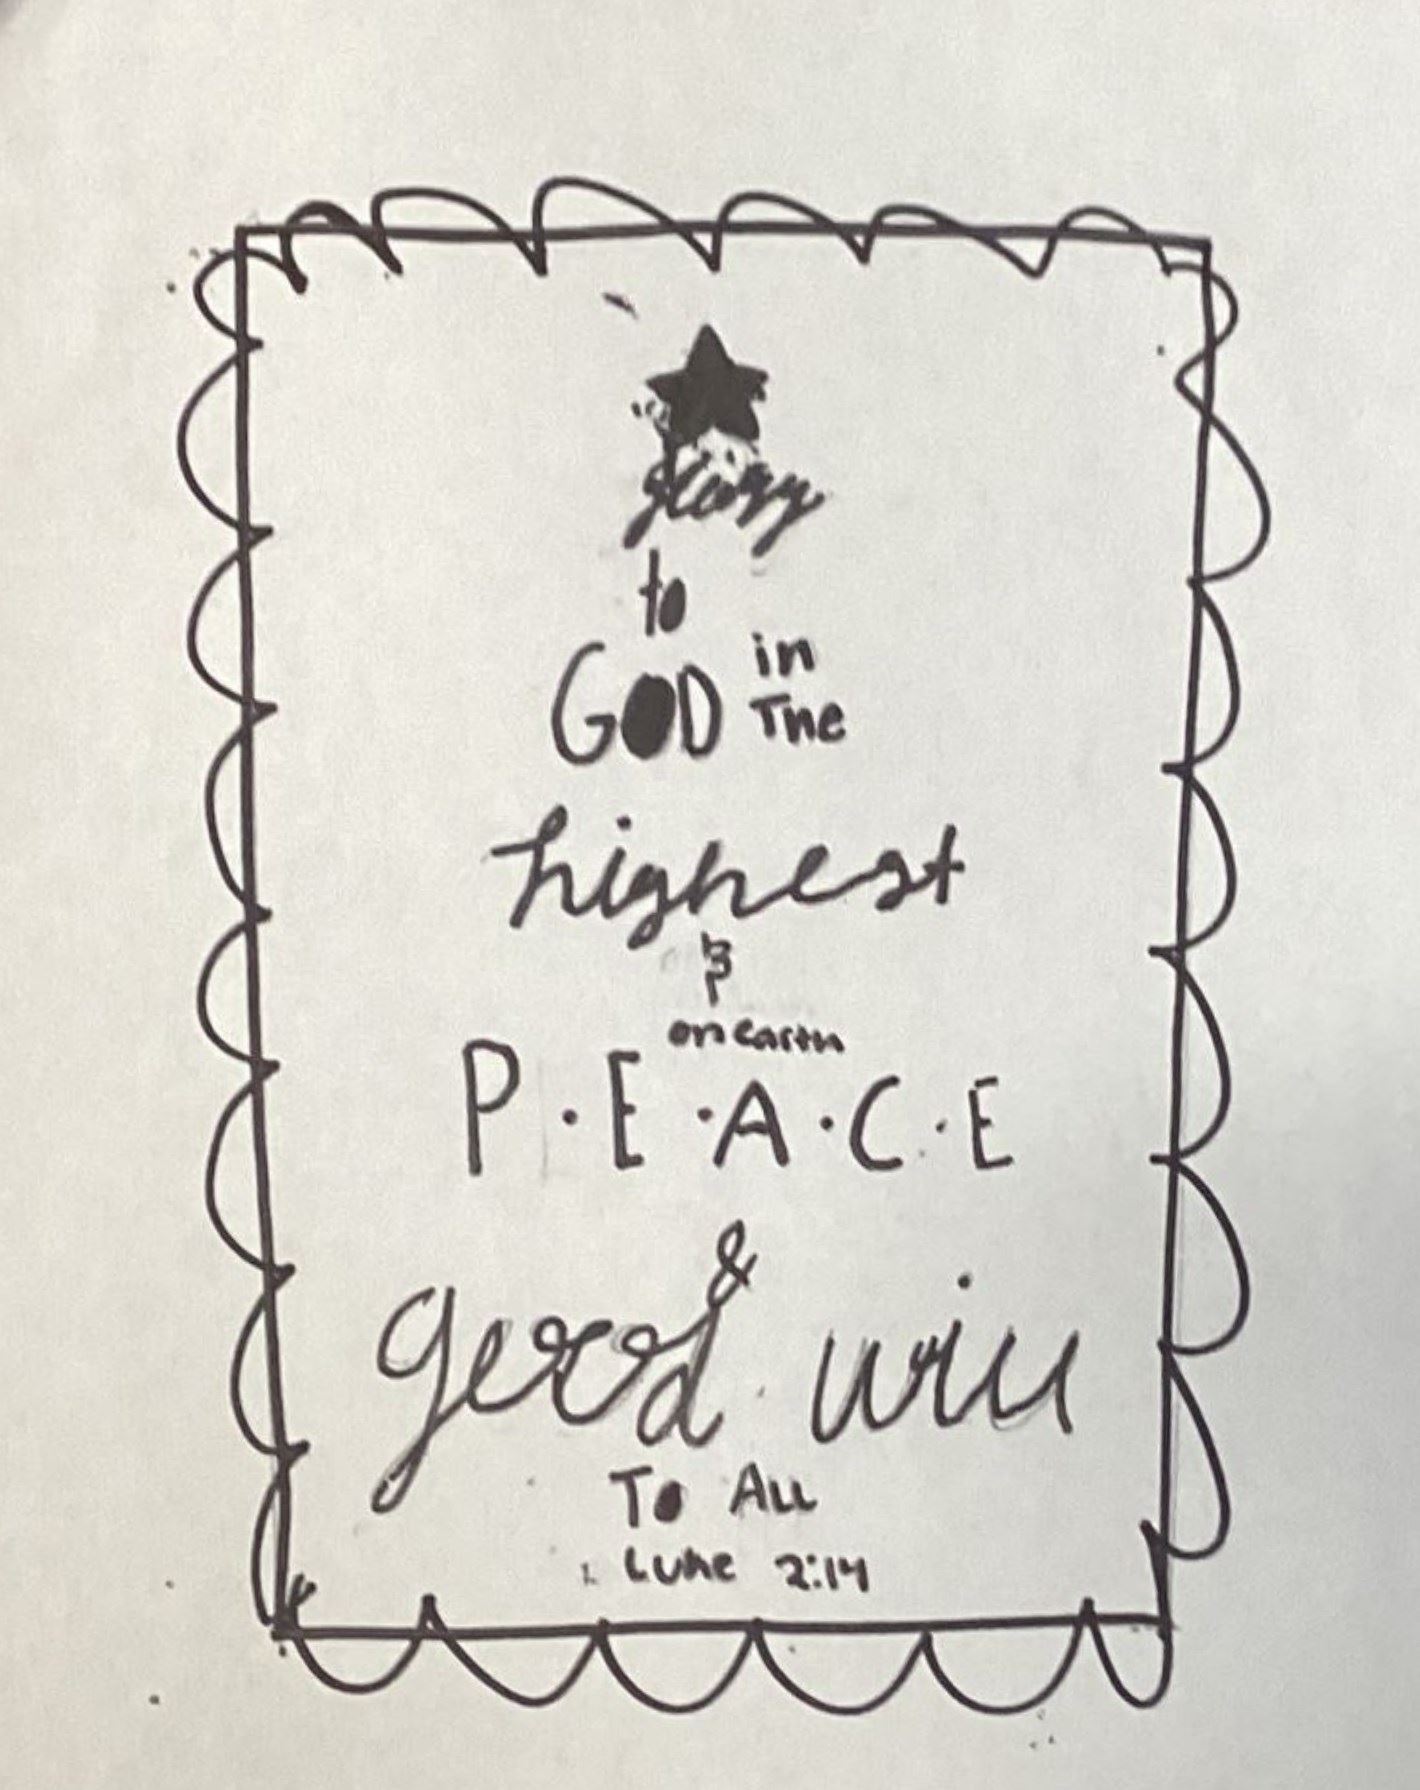 glory
to
GOD in
The
highest
&
on earth
P.E.A.C.E
&
good will
TO ALL
Luke 2:14